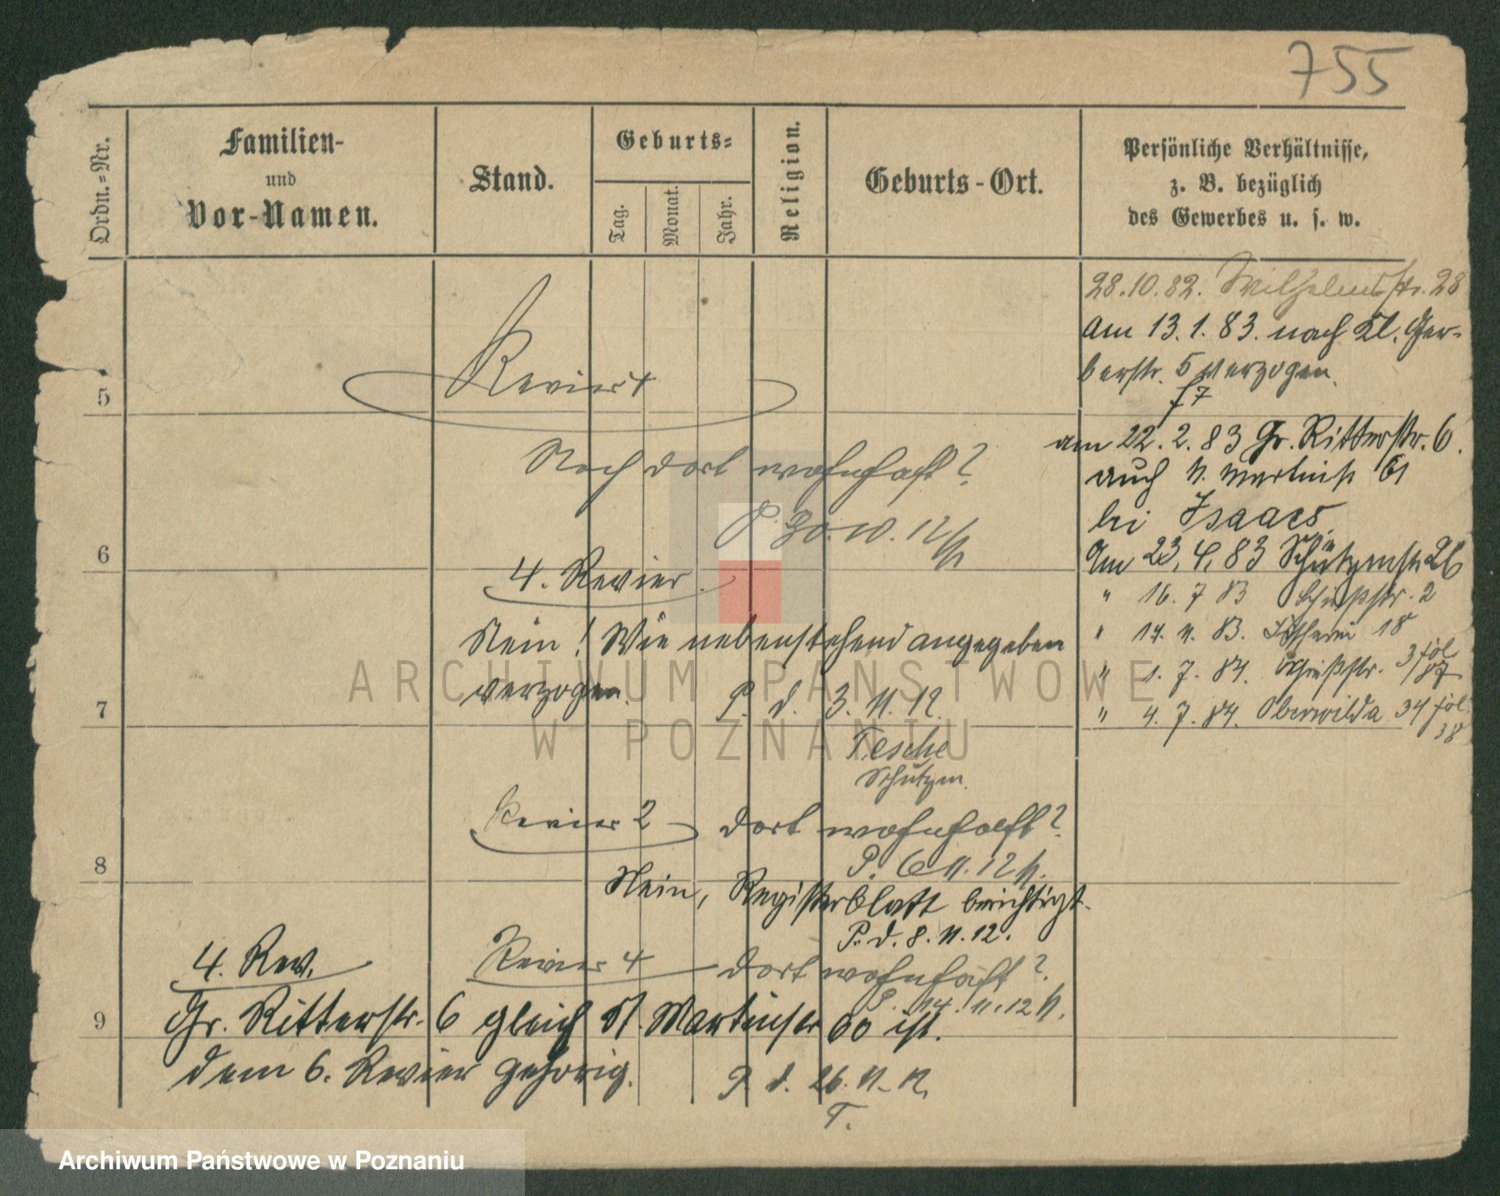 755
Ordn.-Nr.
Familien-
und
Vor-Namen.
Stand.
Geburts-
Tag.
Monat.
Jahr.
Religion.
Geburts-Ort.
Persönliche Verhältnisse,
z. B. bezüglich
des Gewerbes u. s. w.
28.10.82. Wilhelmstr. 28
am 13.1.83. nach Kl. Ger-
berstr. 5 verzogen.
f 7
5
Revier 4
am 22.2.83 Gr. Ritterstr. 6.
Noch dort wohnhaft?
auch St. Martinstr. 61
bei Isaacs.
6
P. 30.10.12
Am 23.4.83 Schützenstr. 26
4. Revier.
" 16.7 83 Schießstr. 2
Nein! Wie nebenstehend angegeben
" 14.11.83. 18
verzogen.
" 1.7.84. Schießstr. 3 fol
P. d. 3.11.12.
" 4.7.84. Oberwilda 34 fol.
38
7
Tesche
Schutzm.
Revier 2 dort wohnhaft?
8
P. 6.11.12
Nein, Registerblatt berichtigt.
P. d. 8.11.12.
4. Rev.
Revier 4 dort wohnhaft?
P. 14.11.12
9
Gr. Ritterstr. 6 gleich St. Martinstr 60 ist.
dem 6. Revier gehörig.
P. d. 26.11.12.
T.
ARCHIWUM PAŃSTWOWE
W POZNANIU
Archiwum Państwowe w Poznaniu